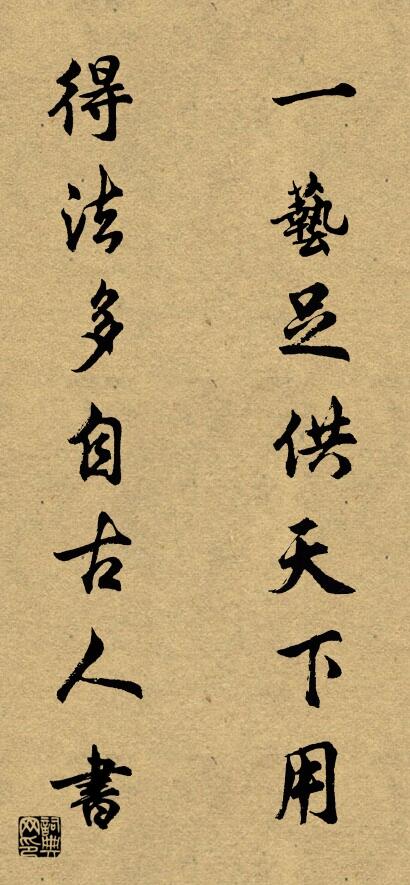 一藝足供天下用
得法多自古人書
詞典网印